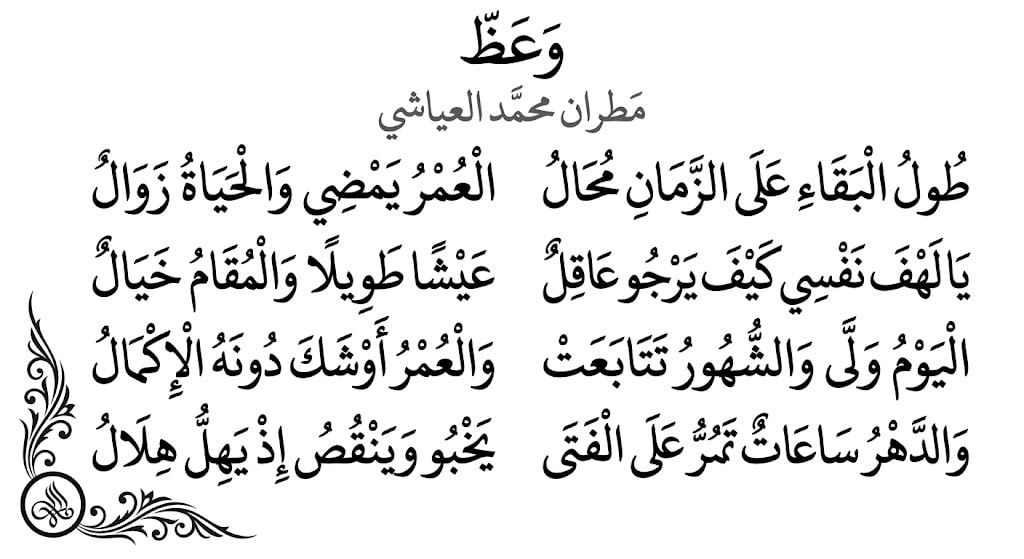 وَعَظّ
مَطران محمَّد العياشي
طُولُ الْبَقَاءِ عَلَى الزَّمَانِ مُحَالُ الْعُمْرُ يَمْضِي وَالْحَيَاةُ زَوَالٌ
يَا لَهْفَ نَفْسِي كَيْفَ يَرْجُو عَاقِلٌ عَيْشًا طَوِيلًا وَالْمُقَامُ خَيَالٌ
الْيَوْمُ وَلَّى وَالشُّهُورُ تَتَابَعَتْ وَالْعُمْرُ أَوْشَكَ دُونَهُ الْإِكْمَالُ
وَالدَّهْرُ سَاعَاتٌ تَمُرُّ عَلَى الْفَتَى يَخْبُو وَيَنْقُصُ إِذْ يَهِلُّ هِلَالُ